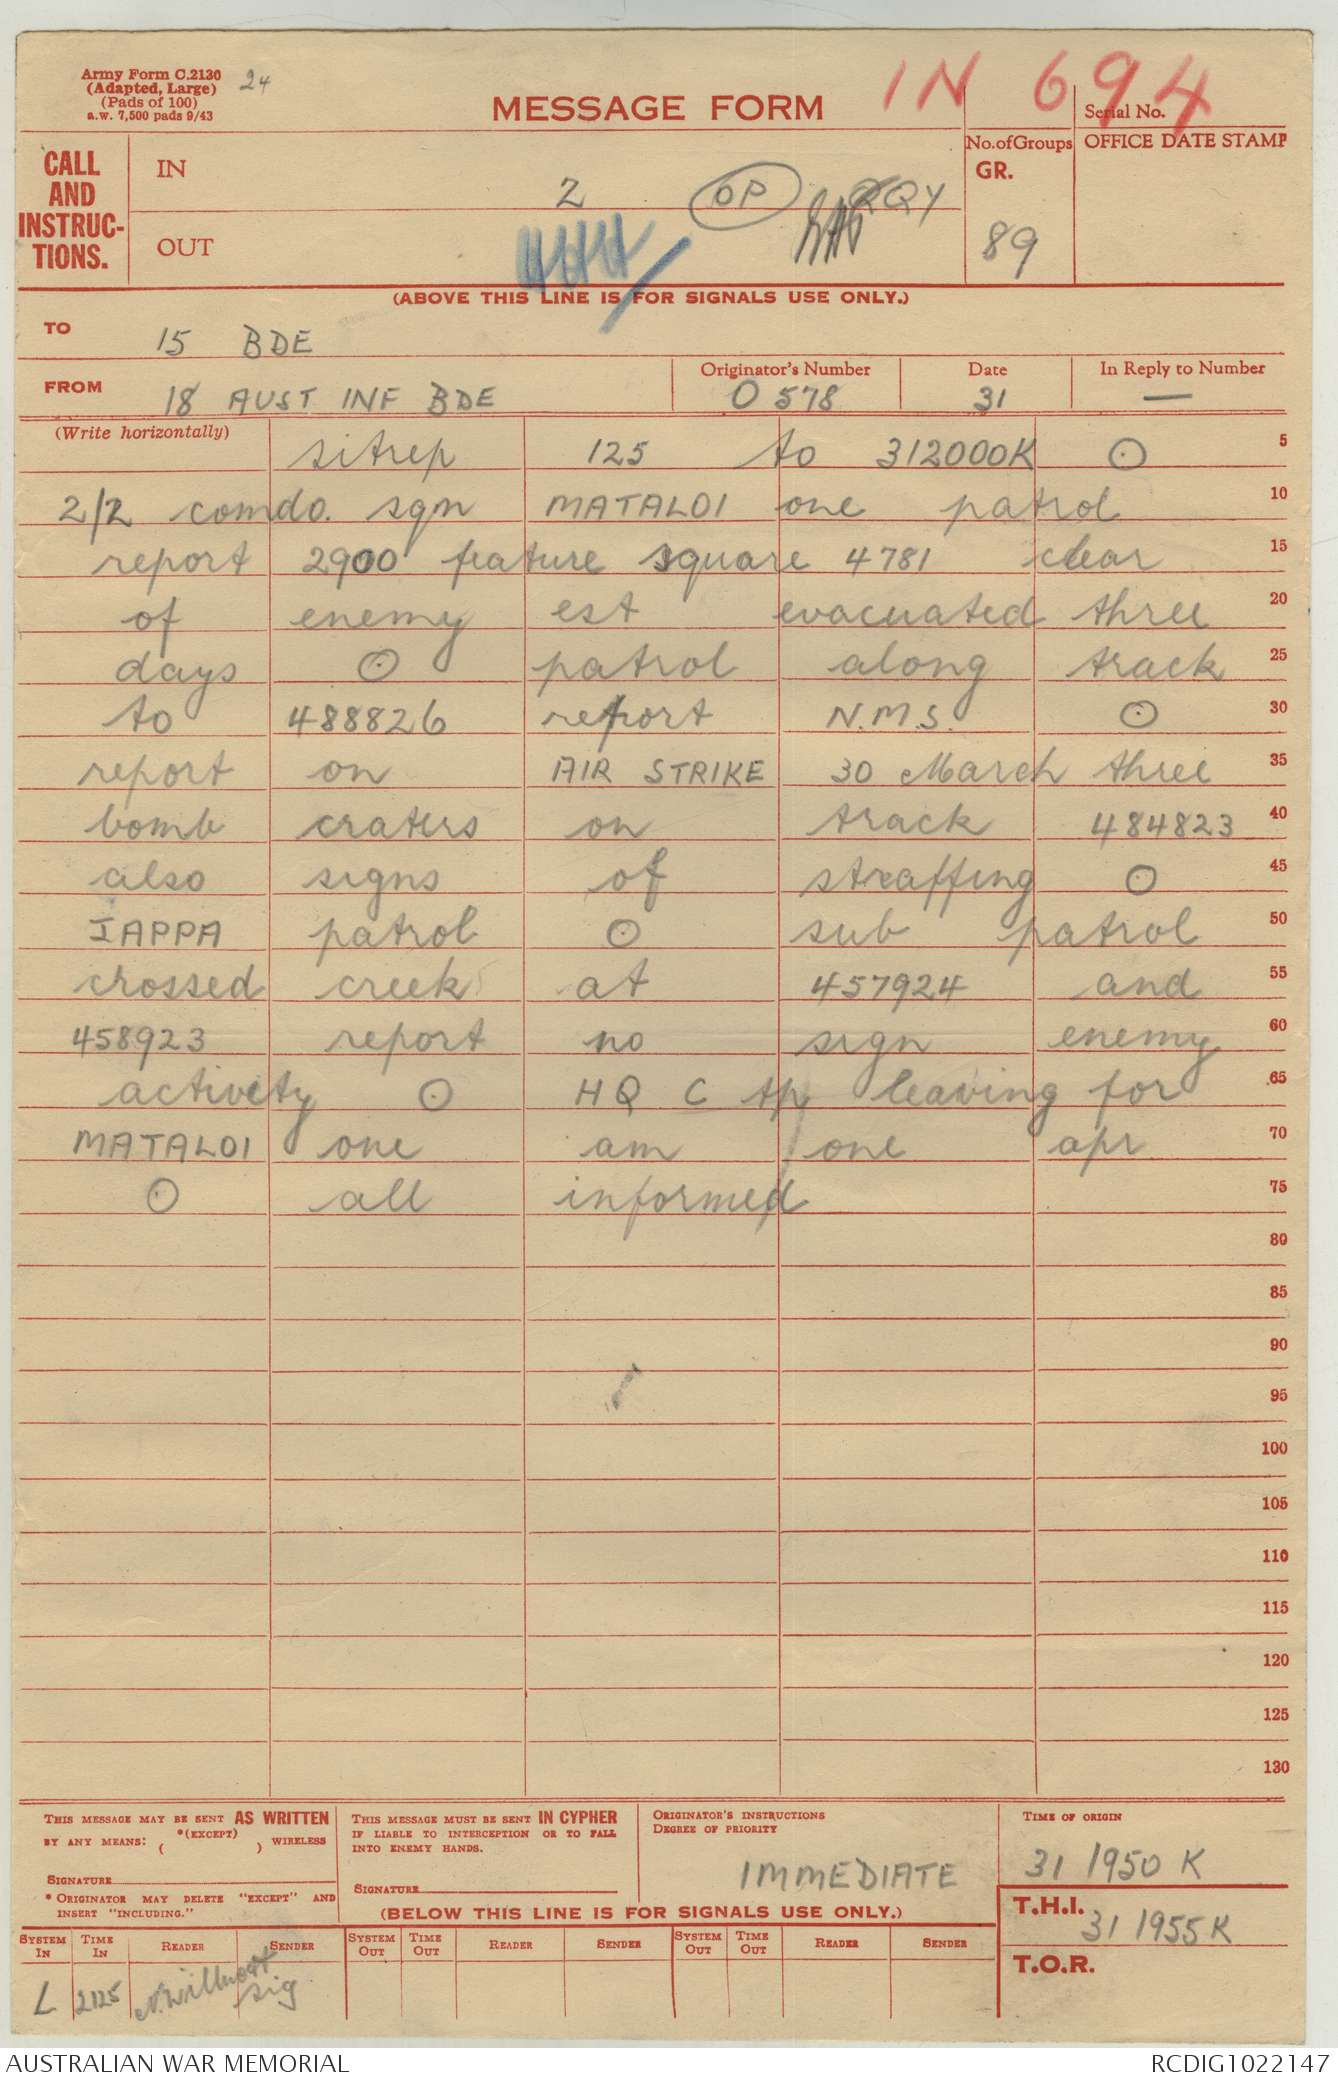 Army Form C.2130
(Adapted, Large)
(Pads of 100)
a.w. 7,500 pads 9/43
24
MESSAGE FORM
IN 694
Serial No.
CALL AND INSTRUC-TIONS.
IN
2 OP QQY
OUT
No. of Groups
GR.
89
OFFICE DATE STAMP
(ABOVE THIS LINE IS FOR SIGNALS USE ONLY.)
TO 15 BDE
FROM 18 AUST INF BDE
Originator's Number O 578
Date 31
In Reply to Number —
(Write horizontally)
sitrep 125 to 312000K ⊙ 5
2/2 comdo. sqn MATALOI one patrol 10
report 2900 feature square 4781 clear 15
of enemy est evacuated three 20
days ⊙ patrol along track 25
to 488826 report N.M.S. ⊙ 30
report on AIR STRIKE 30 March three 35
bomb craters on track 484823 40
also signs of straffing ⊙ 45
IAPPA patrol ⊙ sub patrol 50
crossed creek at 457924 and 55
458923 report no sign enemy 60
activety ⊙ HQ C tp leaving for 65
MATALOI one am one apr 70
⊙ all informed 75
80
85
90
95
100
105
110
115
120
125
130
THIS MESSAGE MAY BE SENT AS WRITTEN
BY ANY MEANS: *(EXCEPT) ( ) WIRELESS
SIGNATURE
* ORIGINATOR MAY DELETE "EXCEPT" AND
INSERT "INCLUDING."
THIS MESSAGE MUST BE SENT IN CYPHER
IF LIABLE TO INTERCEPTION OR TO FALL
INTO ENEMY HANDS.
SIGNATURE
ORIGINATOR'S INSTRUCTIONS
DEGREE OF PRIORITY
IMMEDIATE
TIME OF ORIGIN
31 1950 K
(BELOW THIS LINE IS FOR SIGNALS USE ONLY.)
T.H.I.
31 1955 K
T.O.R.
SYSTEM IN TIME IN READER SENDER SYSTEM OUT TIME OUT READER SENDER SYSTEM OUT TIME OUT READER SENDER
L 2125 N. Willmott
sig
AUSTRALIAN WAR MEMORIAL RCDIG1022147